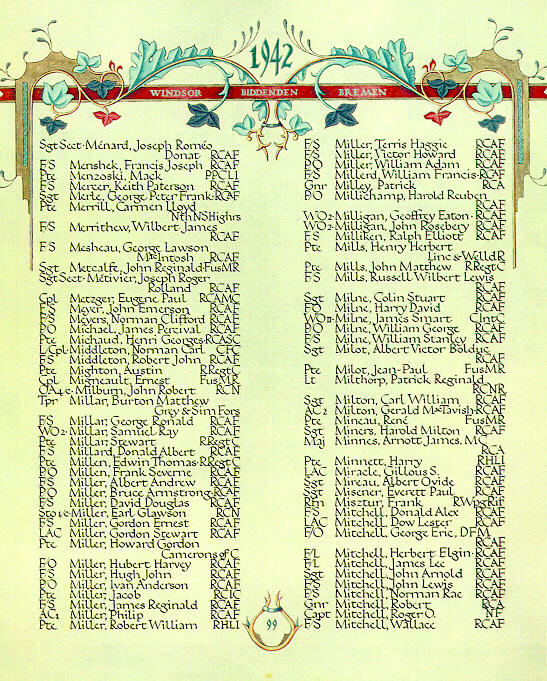 1942
WINDSOR BIDDENDEN BREMEN
Sgt Sect-Ménard, Joseph Roméo
Donat RCAF
F/S Menshek, Francis Joseph RCAF
Pte Menzoski, Mack PPCLI
F/S Mercer, Keith Paterson RCAF
Sgt Merle, George Peter Frank-RCAF
Pte Merrill, Carmen Lloyd
NthNSHighrs
F/S Merrithew, Wilbert James
RCAF
F/S Mesheau, George Lawson
McIntosh RCAF
Sgt Metcalfe, John Reginald-FusMR
Sgt Sect-Métivier, Joseph Roger
Rolland RCAF
Cpl Metzger, Eugene Paul RCAMC
F/S Meyer, John Emerson RCAF
F/S Meyers, Norman Clifford RCAF
P/O Michael, James Percival RCAF
Pte Michaud, Henri Georges-RCASC
L/Cpl-Middleton, Norman Carl CFC
F/S Middleton, Robert John RCAF
Pte Mighton, Austin RRegtC
Cpl Migneault, Ernest FusMR
OA4c-Milburn, John Robert RCN
Tpr Millar, Burton Matthew
Grey&SimFors
F/S Millar, George Ronald RCAF
WO2-Millar, Samuel Ray RCAF
Pte Millar, Stewart RRegtC
F/S Millard, Donald Albert RCAF
Pte Millen, Edwin Thomas-RRegtC
P/O Millen, Frank Severne RCAF
F/S Miller, Albert Andrew RCAF
P/O Miller, Bruce Armstrong-RCAF
F/S Miller, David Douglas RCAF
Sto1c-Miller, Earl Glawson RCN
F/S Miller, Gordon Ernest RCAF
LAC Miller, Gordon Stewart RCAF
Pte Miller, Howard Gordon
Camerons of C
F/O Miller, Hubert Harvey RCAF
F/S Miller, Hugh John RCAF
P/O Miller, Ivan Anderson RCAF
Pte Miller, Jacob RCIC
F/S Miller, James Reginald RCAF
AC1 Miller, Philip RCAF
Pte Miller, Robert William RHLI
F/S Miller, Terris Haggie RCAF
F/S Miller, Victor Howard RCAF
P/O Miller, William Adam RCAF
F/S Millerd, William Francis-RCAF
Gnr Milley, Patrick RCA
P/O Millichamp, Harold Reuben
RCAF
WO2-Milligan, Geoffrey Eaton-RCAF
WO2-Milligan, John Rosebery RCAF
F/S Milliken, Ralph Elliott RCAF
Pte Mills, Henry Herbert
Linc&WelldR
Pte Mills, John Matthew RRegtC
F/S Mills, Russell Wilbert Lewis
RCAF
Sgt Milne, Colin Stuart RCAF
F/O Milne, Harry David RCAF
WOII-Milne, James Smart CIntC
P/O Milne, William George RCAF
F/S Milne, William Stanley RCAF
Sgt Milot, Albert Victor Bolduc
RCAF
Pte Milot, Jean-Paul FusMR
Lt Milthorp, Patrick Reginald
RCNR
Sgt Milton, Carl William RCAF
AC2 Milton, Gerald McTavish-RCAF
Pte Mineau, René FusMR
Sgt Miners, Harold Milton RCAF
Maj Minnes, Arnott James, MC
RCA
Pte Minnett, Harry RHLI
LAC Miracle, Gillous S. RCAF
Sgt Mireau, Albert Ovide RCAF
Sgt Misener, Everett Paul RCAF
Rfn Misztur, Frank RWpgRif
F/S Mitchell, Donald Alex RCAF
LAC Mitchell, Dow Lester RCAF
F/O Mitchell, George Eric, DFM
RCAF
F/L Mitchell, Herbert Elgin-RCAF
F/L Mitchell, James Lee RCAF
Sgt Mitchell, John Arnold RCAF
F/S Mitchell, John Lewis RCAF
F/S Mitchell, Norman Rae RCAF
Gnr Mitchell, Robert RCA
Capt Mitchell, Roger O. NF
F/S Mitchell, Wallace RCAF
99